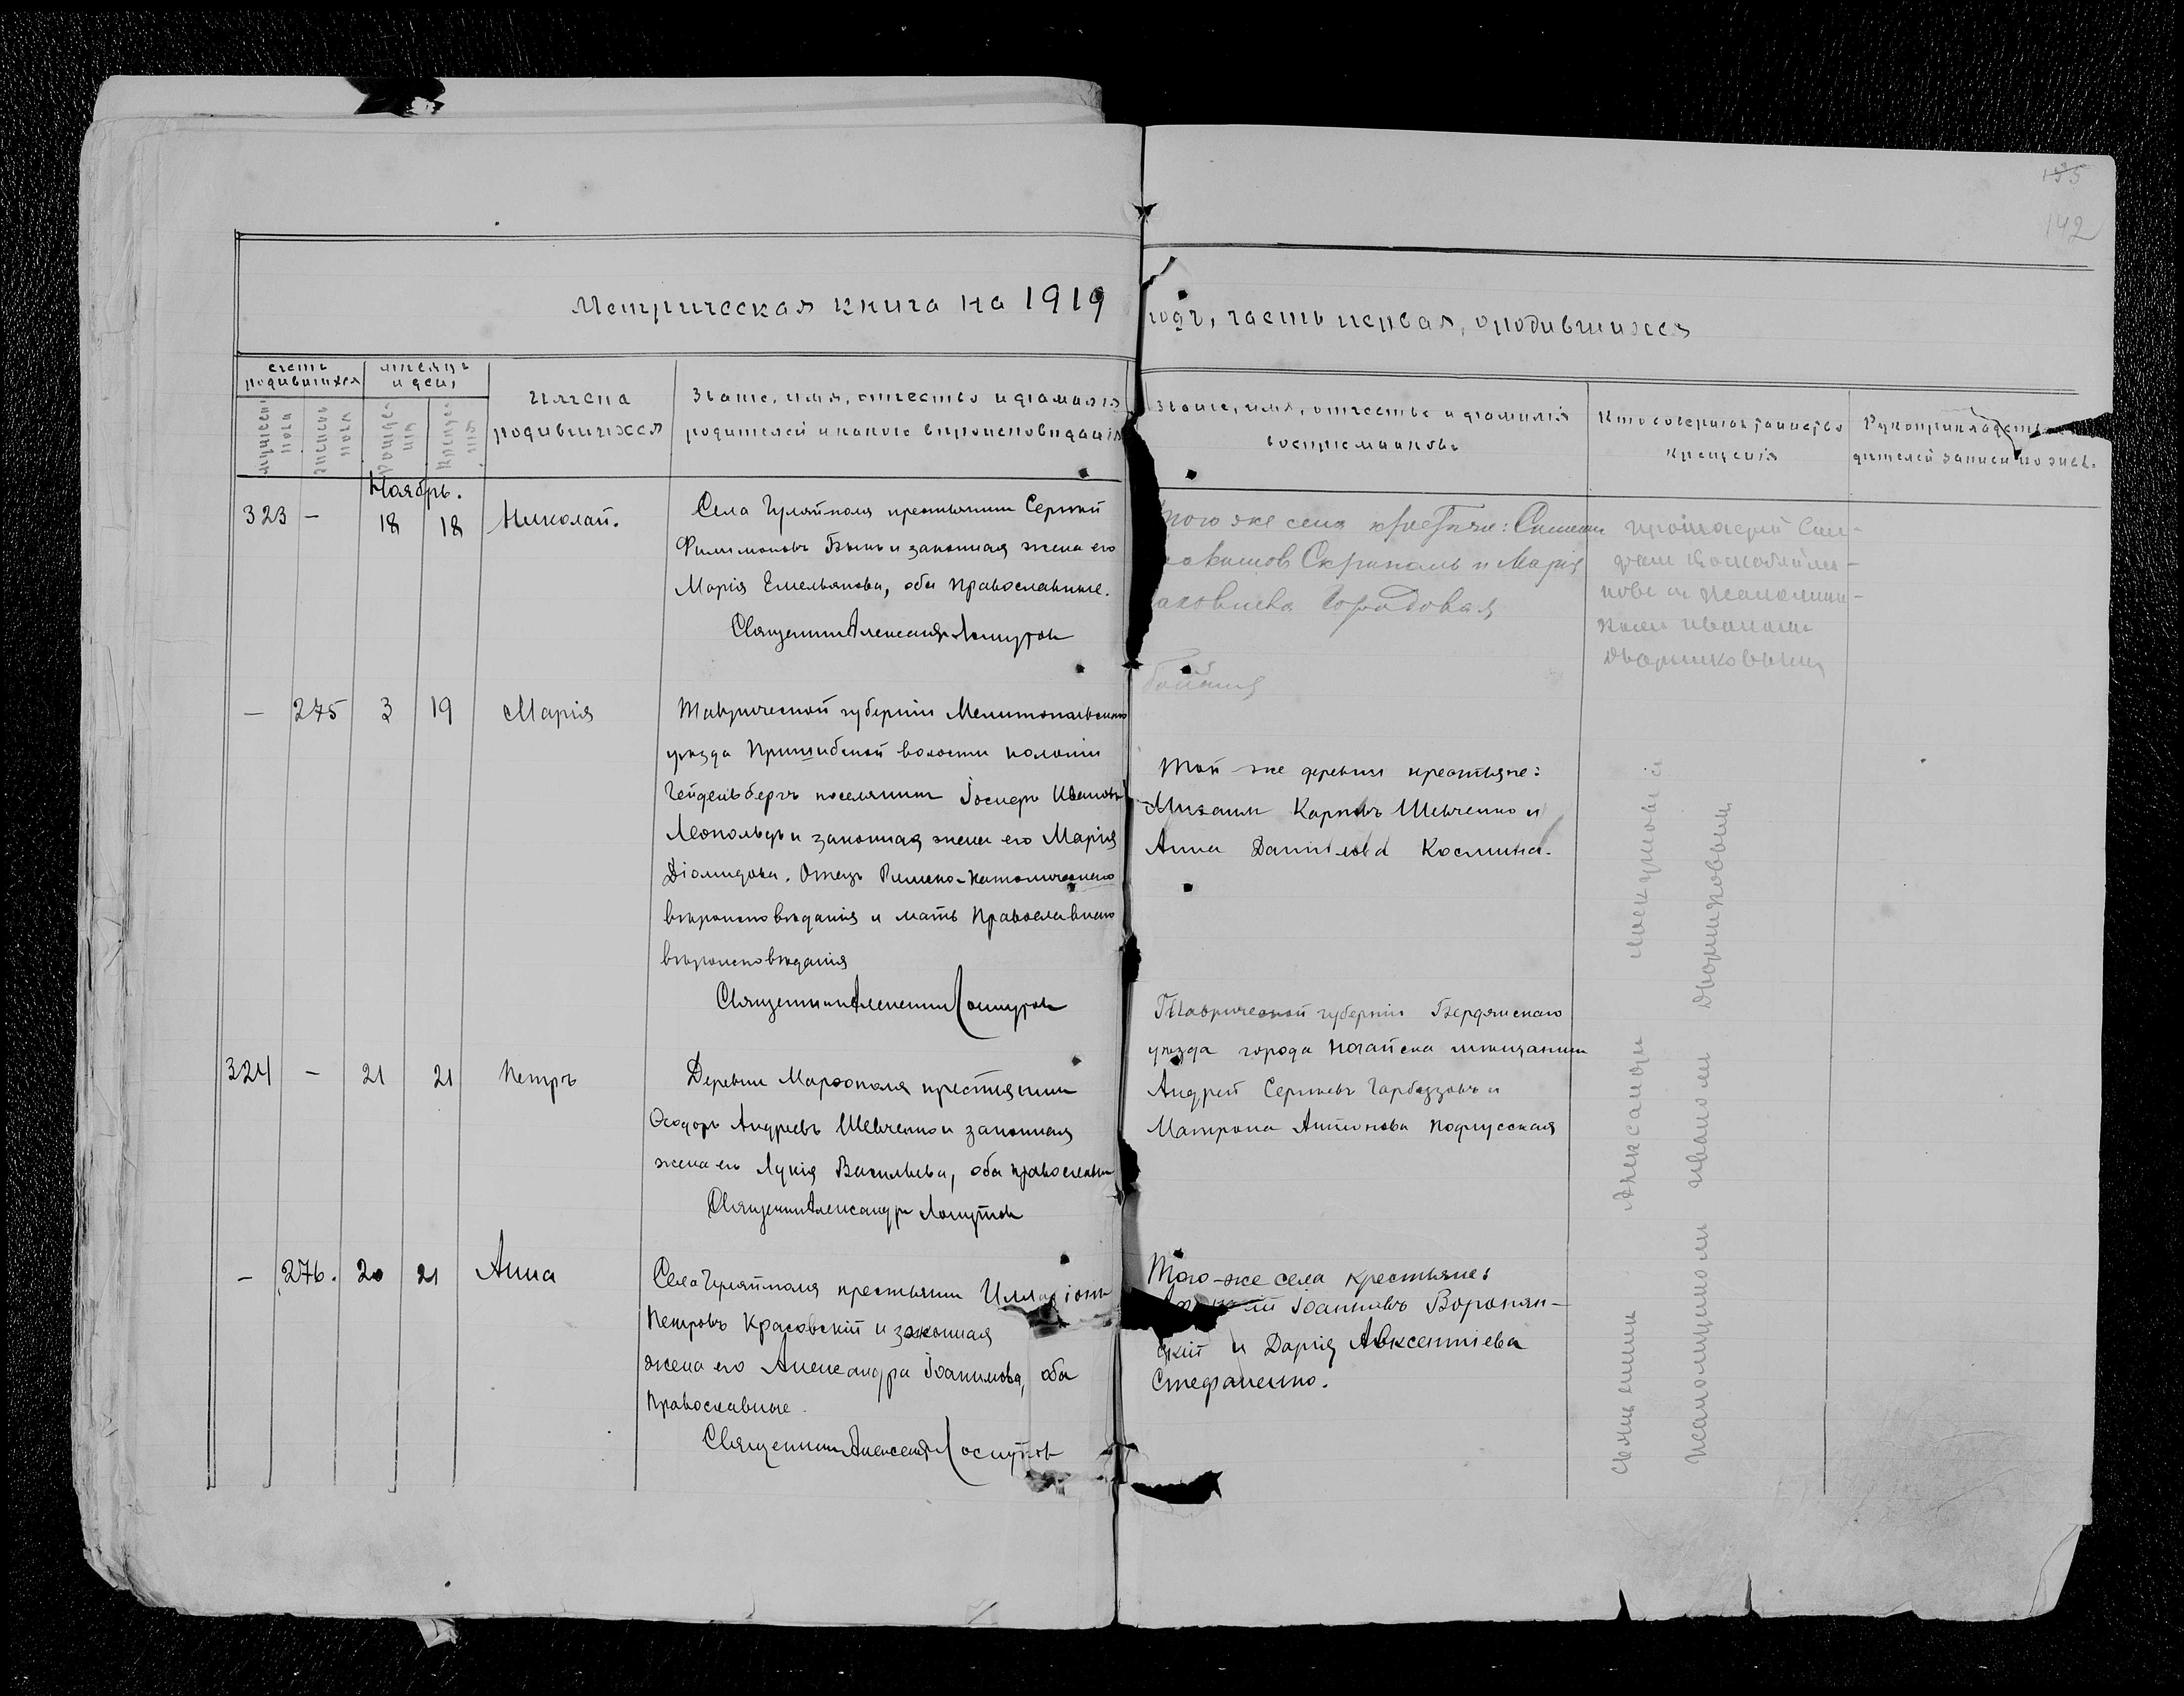 135
142
Метрическая книга на 1919
годъ, часть первая, о родившихся
счетъ родившихся
мѣсяцъ и день
мужеск. пола
женскаго пола
рожденія
крещенія
имена родившихся
Званіе, имя, отчество и фамилія
родителей и какого вѣроисповѣданія
Званіе, имя, отчество и фамилія
воспріемниковъ
Кто совершалъ таинство
крещенія
Рукоприкладство
дѣтелей записи по жел.
Ноябрь.
323 — 18 18 Николай.
Села Гуляйполя крестьянинъ Сергѣй
Филимоновъ Быкъ и законная жена его
Марія Емельянова, оба православные.
Священникъ Александръ
того же села крестьяне: Симеонъ
Скрипаль и Марія
Городовая
протоіерей
псаломщи-
комъ Иваномъ
Дворниковымъ
— 275 3 19 Марія
Таврической губерніи Мелитопольскаго
уѣзда Пришибской волости колоніи
Гейдельбергъ поселянинъ Іосифъ Ивановъ
Леопольдъ и законная жена его Марія
Діомидова. Отецъ Римско-Католическаго
вѣроисповѣданія и мать Православнаго
вѣроисповѣданія
Священникъ Алексѣй
Той же деревни крестьяне:
Михаилъ Карповъ Шевченко и
Анна Даниілова Космина.
324 — 21 21 Петръ
Деревни Марфополя крестьянинъ
Ѳеодоръ Андреевъ Шевченко и законная
жена его Лукія Васильева, оба православн
Священникъ Александръ
Таврической губерніи Бердянскаго
уѣзда города Ногайска мѣщанинъ
Андрей Сергѣевъ Гарбузовъ и
Матрона Антонова
— 276. 20 21 Анна
Села Гуляйполя крестьянинъ Илларіонъ
Петровъ Красовскій и законная
жена его Александра Іоаннова, оба
православные.
Священникъ
Того-же села крестьяне:
Іоанновъ Воропян-
скій и Дарія Авксентіева
Стефаненко.
Священникъ Александръ
псаломщикомъ Иваномъ Дворниковымъ